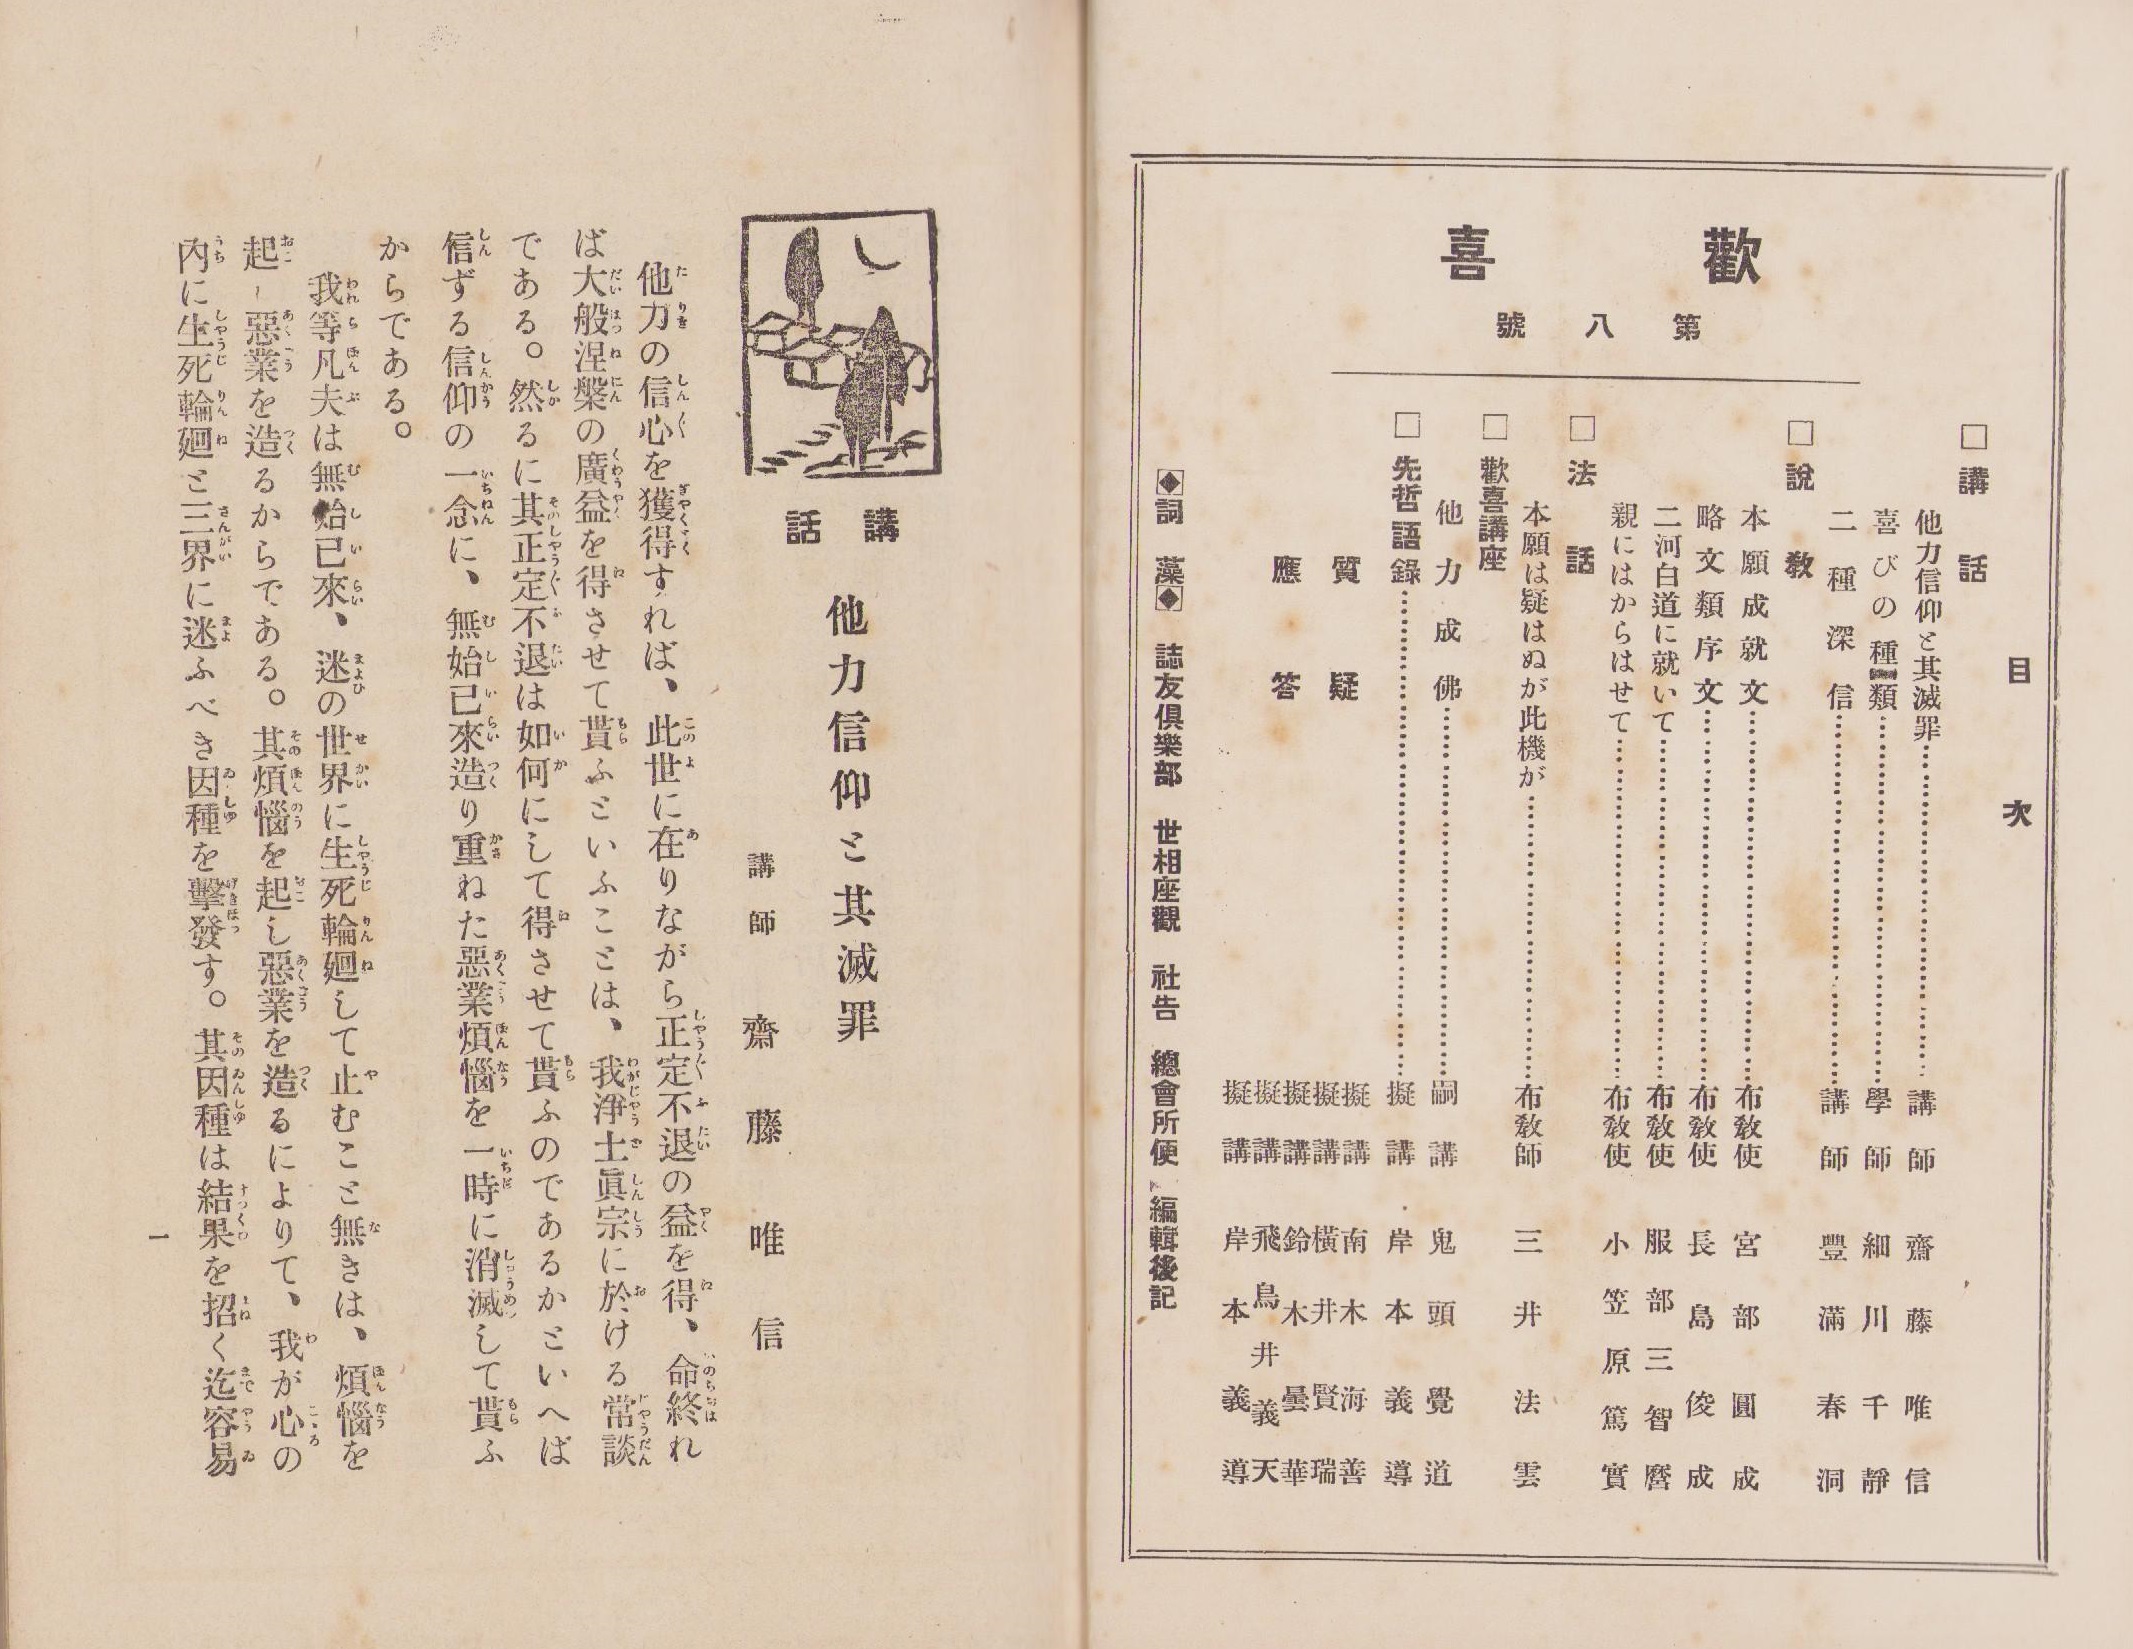 歡喜
第八號
目次
□講話
他力信仰と其滅罪……講師 齋藤唯信
喜びの種類……學師 細川千靜
二種深信……講師 豐滿春洞
□說敎
本願成就文……布敎使 宮部圓成
略文類序文……布敎使 長島俊成
二河白道に就いて……布敎使 服部三智麿
親にはからはせて……布敎使 小笠原篤實
□法話
本願は疑はぬが此機が……布敎師 三井法雲
□歡喜講座
他力成佛……嗣講 鬼頭覺道
□先哲語錄……擬講 岸本義導
質疑應答
擬講 南木海善
擬講 橫井賢瑞
擬講 鈴木曇華
擬講 飛鳥井義天
擬講 岸本義導
◆詞藻◆ 誌友俱樂部 世相座觀 社告 總會所便 編輯後記
講話
他力信仰と其滅罪
講師 齋藤唯信
他力の信心を獲得すれば、此世に在りながら正定不退の益を得、命終れ
ば大般涅槃の廣益を得させて貰ふといふことは、我淨土眞宗に於ける常談
である。然るに其正定不退は如何にして得させて貰ふのであるかといへば
信ずる信仰の一念に、無始已來造り重ねた惡業煩惱を一時に消滅して貰ふ
からである。
我等凡夫は無始已來、迷の世界に生死輪廻して止むこと無きは、煩惱を
起し惡業を造るからである。其煩惱を起し惡業を造るによりて、我が心の
內に生死輪廻と三界に迷ふべき因種を擊發す。其因種は結果を招く迄容易
一